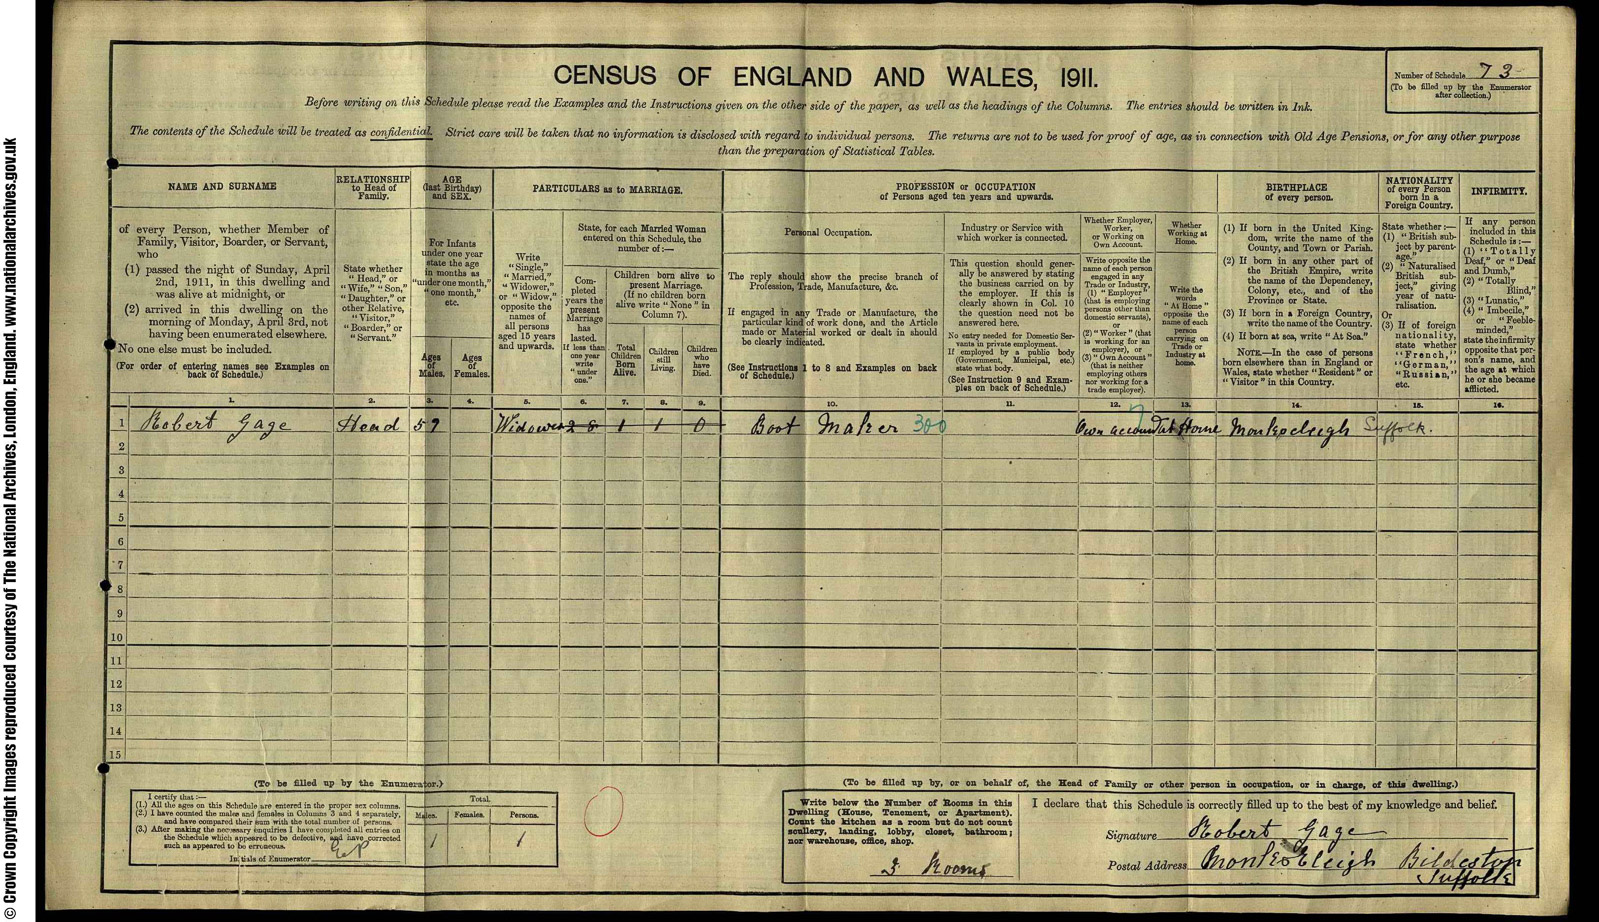 CENSUS OF ENGLAND AND WALES, 1911.
Number of Schedule 73
(To be filled up by the Enumerator
after collection.)
Before writing on this Schedule please read the Examples and the Instructions given on the other side of the paper, as well as the headings of the Columns. The entries should be written in Ink.
The contents of the Schedule will be treated as confidential. Strict care will be taken that no information is disclosed with regard to individual persons. The returns are not to be used for proof of age, as in connection with Old Age Pensions, or for any other purpose
than the preparation of Statistical Tables.
NAME AND SURNAME
of every Person, whether Member of
Family, Visitor, Boarder, or Servant,
who
(1) passed the night of Sunday, April
2nd, 1911, in this dwelling and
was alive at midnight, or
(2) arrived in this dwelling on the
morning of Monday, April 3rd, not
having been enumerated elsewhere.
No one else must be included.
(For order of entering names see Examples on
back of Schedule.)
RELATIONSHIP
to Head of
Family.
State whether
"Head," or
"Wife," "Son,"
"Daughter," or
other Relative,
"Visitor,"
"Boarder," or
"Servant."
AGE
(last Birthday)
and SEX.
For Infants
under one year
state the age
in months as
"under one month,"
"one month,"
etc.
Ages
of
Males.
Ages
of
Females.
PARTICULARS as to MARRIAGE.
Write
"Single,"
"Married,"
"Widower,"
or "Widow,"
opposite the
names of
all persons
aged 15 years
and upwards.
State, for each Married Woman
entered on this Schedule, the
number of:—
Com-
pleted
years the
present
Marriage
has
lasted.
If less than
one year
write
"under
one."
Children born alive to
present Marriage.
(If no children born
alive write "None" in
Column 7).
Total
Children
Born
Alive.
Children
still
Living.
Children
who
have
Died.
PROFESSION or OCCUPATION
of Persons aged ten years and upwards.
Personal Occupation.
The reply should show the precise branch of
Profession, Trade, Manufacture, &c.
If engaged in any Trade or Manufacture, the
particular kind of work done, and the Article
made or Material worked or dealt in should
be clearly indicated.
(See Instructions 1 to 8 and Examples on back
of Schedule.)
Industry or Service with
which worker is connected.
This question should gener-
ally be answered by stating
the business carried on by
the employer. If this is
clearly shown in Col. 10
the question need not be
answered here.
No entry needed for Domestic Ser-
vants in private employment.
If employed by a public body
(Government, Municipal, etc.)
state what body.
(See Instruction 9 and Exam-
ples on back of Schedule.)
Whether Employer,
Worker,
or Working on
Own Account.
Write opposite the
name of each person
engaged in any
Trade or Industry,
(1) "Employer"
(that is employing
persons other than
domestic servants),
or
(2) "Worker" (that
is working for an
employer), or
(3) "Own Account"
(that is neither
employing others
nor working for a
trade employer).
Whether
Working at
Home.
Write the
words
"At Home"
opposite the
name of each
person
carrying on
Trade or
Industry at
home.
BIRTHPLACE
of every person.
(1) If born in the United King-
dom, write the name of the
County, and Town or Parish.
(2) If born in any other part of
the British Empire, write
the name of the Dependency,
Colony, etc., and of the
Province or State.
(3) If born in a Foreign Country,
write the name of the Country.
(4) If born at sea, write "At Sea."
NOTE.—In the case of persons
born elsewhere than in England or
Wales, state whether "Resident" or
"Visitor" in this Country.
NATIONALITY
of every Person
born in a
Foreign Country.
State whether:—
(1) "British sub-
ject by parent-
age."
(2) "Naturalised
British sub-
ject," giving
year of natu-
ralisation.
Or
(3) If of foreign
nationality,
state whether
"French,"
"German,"
"Russian,"
etc.
INFIRMITY.
If any person
included in this
Schedule is:—
(1) "Totally
Deaf," or "Deaf
and Dumb,"
(2) "Totally
Blind,"
(3) "Lunatic,"
(4) "Imbecile,"
or "Feeble-
minded,"
state the infirmity
opposite that per-
son's name, and
the age at which
he or she became
afflicted.
1. 2. 3. 4. 5. 6. 7. 8. 9. 10. 11. 12. 13. 14. 15. 16.
1 Robert Gage Head 59 Widower 28 1 1 0 Boot Maker 300 Own account At Home Monkseleigh Suffolk.
2
3
4
5
6
7
8
9
10
11
12
13
14
15
(To be filled up by the Enumerator.)
I certify that:—
(1.) All the ages on this Schedule are entered in the proper sex columns.
(2.) I have counted the males and females in Columns 3 and 4 separately,
and have compared their sum with the total number of persons.
(3.) After making the necessary enquiries I have completed all entries on
the Schedule which appeared to be defective, and have corrected
such as appeared to be erroneous.
Initials of Enumerator EP
Total.
Males. Females. Persons.
1 1
(To be filled up by, or on behalf of, the Head of Family or other person in occupation, or in charge, of this dwelling.)
Write below the Number of Rooms in this
Dwelling (House, Tenement, or Apartment).
Count the kitchen as a room but do not count
scullery, landing, lobby, closet, bathroom;
nor warehouse, office, shop.
3 Rooms
I declare that this Schedule is correctly filled up to the best of my knowledge and belief.
Signature Robert Gage
Postal Address Monks Eleigh Bildeston
Suffolk
© Crown Copyright Images reproduced courtesy of The National Archives, London, England. www.nationalarchives.gov.uk